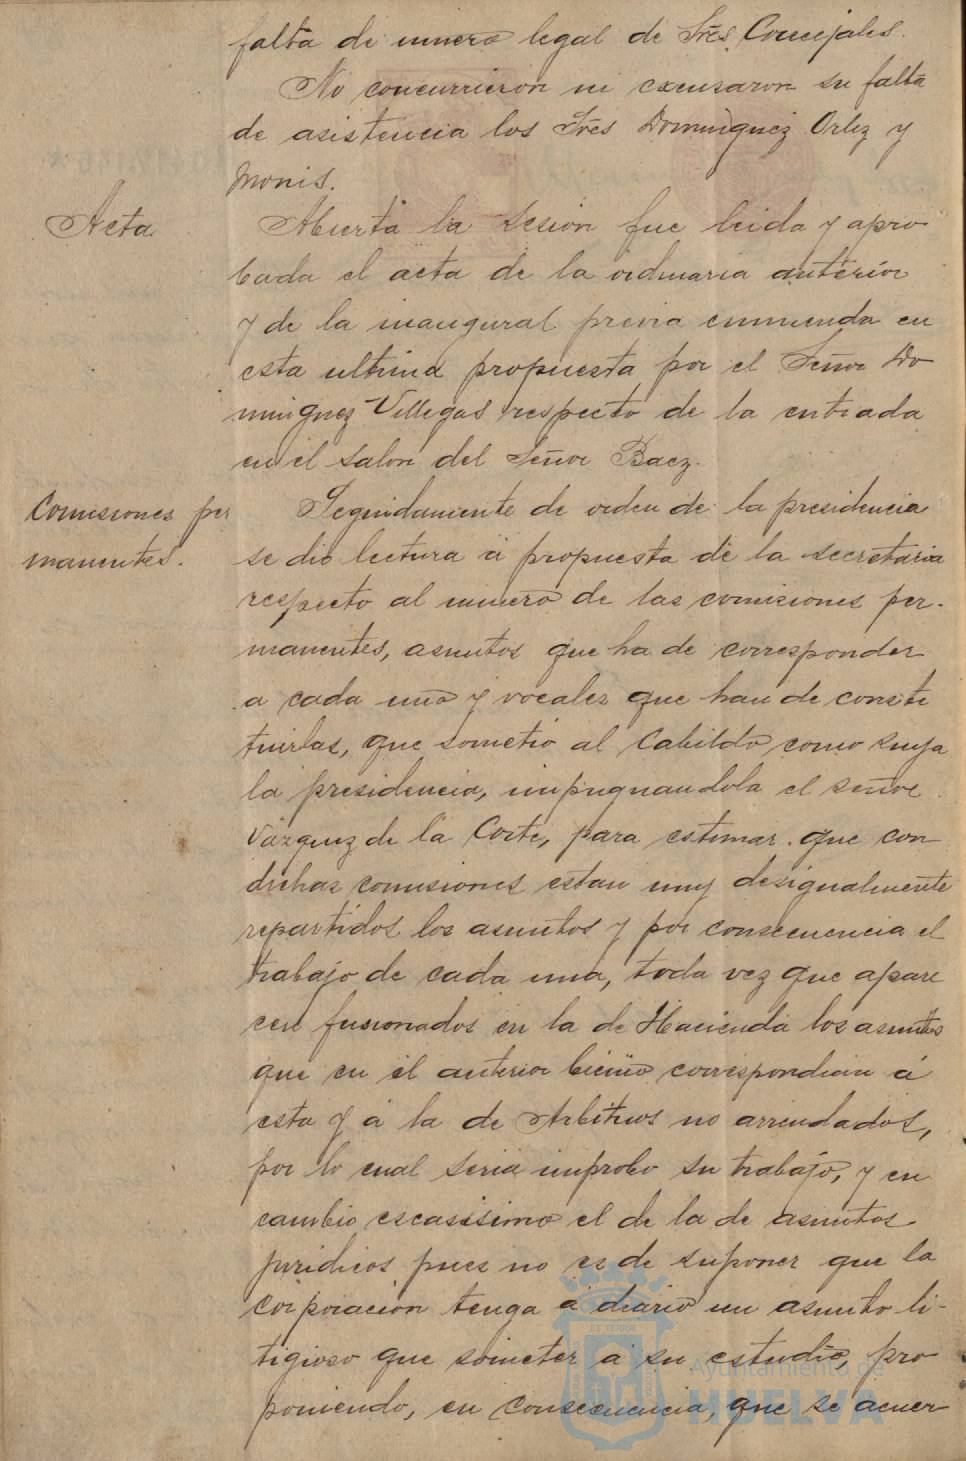 falta de numero legal de Sres. Concejales.
No concurrieron ni excusaron su falta
de asistencia los Sres Dominguez Ortiz y
Monis.
Acta
Abierta la sesion fue leida y apro
bada el acta de la ordinaria anterior
y de la inaugural previa enmienda en
esta ultima propuesta por el Señor Do
minguez Villegas respecto de la entrada
en el salon del Señor Baez.
Comisiones per
manentes.
Seguidamente de orden de la presidencia
se dio lectura á propuesta de la secretaria
respecto al numero de las comisiones per-
manentes, asuntos que ha de corresponder
a cada una y vocales que han de consti
tuirlas, que sometió al Cabildo como suya
la presidencia, impugnandola el señor
Vazquez de la Corte, para estimar que con
dichas comisiones estan muy desigualmente
repartidos los asuntos y por consecuencia el
trabajo de cada una, toda vez que apare
cen fusionados en la de Hacienda los asuntos
que en el anterior bienio correspondian á
esta y á la de Arbitrios no arrendados,
por lo cual seria improbo su trabajo, y en
cambio escasisimo el de la de asuntos
juridicos pues no es de suponer que la
corporacion tenga á diario un asunto li-
tigioso que someter á su estudio, pro
poniendo, en consecuencia, que se acuer
Ayuntamiento de
HUELVA